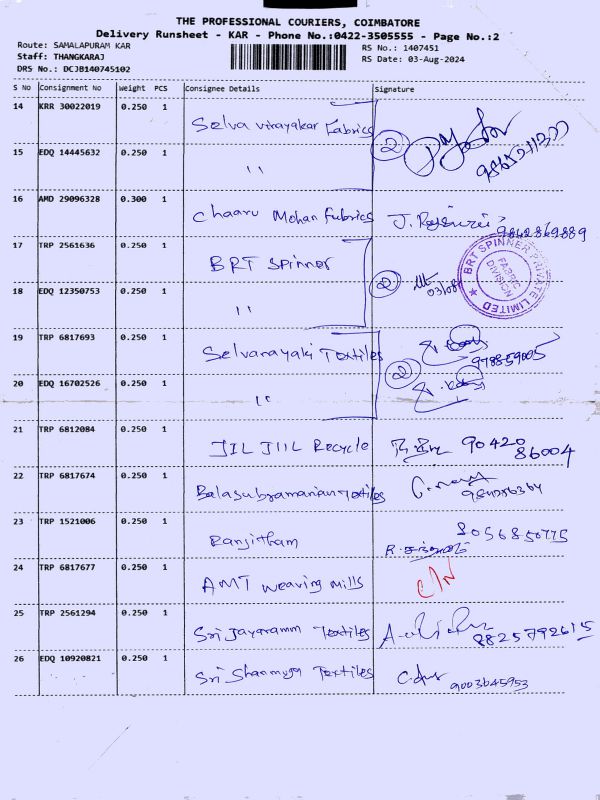 THE PROFESSIONAL COURIERS, COIMBATORE
Delivery Runsheet - KAR - Phone No.:0422-3505555 - Page No.:2
Route: SAMALAPURAM KAR
RS No.: 1407451
Staff: THANGKARAJ
RS Date: 03-Aug-2024
DRS No.: DCJB140745102
S No Consignment No Weight PCS Consignee Details Signature
14 KRR 30022019 0.250 1 Selva Vinayakar Fabrics 2
15 EDQ 14445632 0.250 1 "
16 AMD 29096328 0.300 1 Chaaru Mohan Fabrics J. 9842869889
17 TRP 2561636 0.250 1 BRT Spinner
BRT SPINNER PRIVATE LIMITED
FABRIC DIVISION
18 EDQ 12350753 0.250 1 " 2 03/08
19 TRP 6817693 0.250 1 Selvanayaki Textiles 978859005
20 EDQ 16702526 0.250 1 " 2
21 TRP 6812084 0.250 1 JIL JIIL Recycle 90420
86004
22 TRP 6817674 0.250 1 Balasubramanian Textiles
23 TRP 1521006 0.250 1 Ranjitham 8056850775
24 TRP 6817677 0.250 1 AMT Weaving mills C/N
25 TRP 2561294 0.250 1 Sri Jayaramm Textiles 8825792615
26 EDQ 10920821 0.250 1 Sri Shanmuga Textiles 9003645953